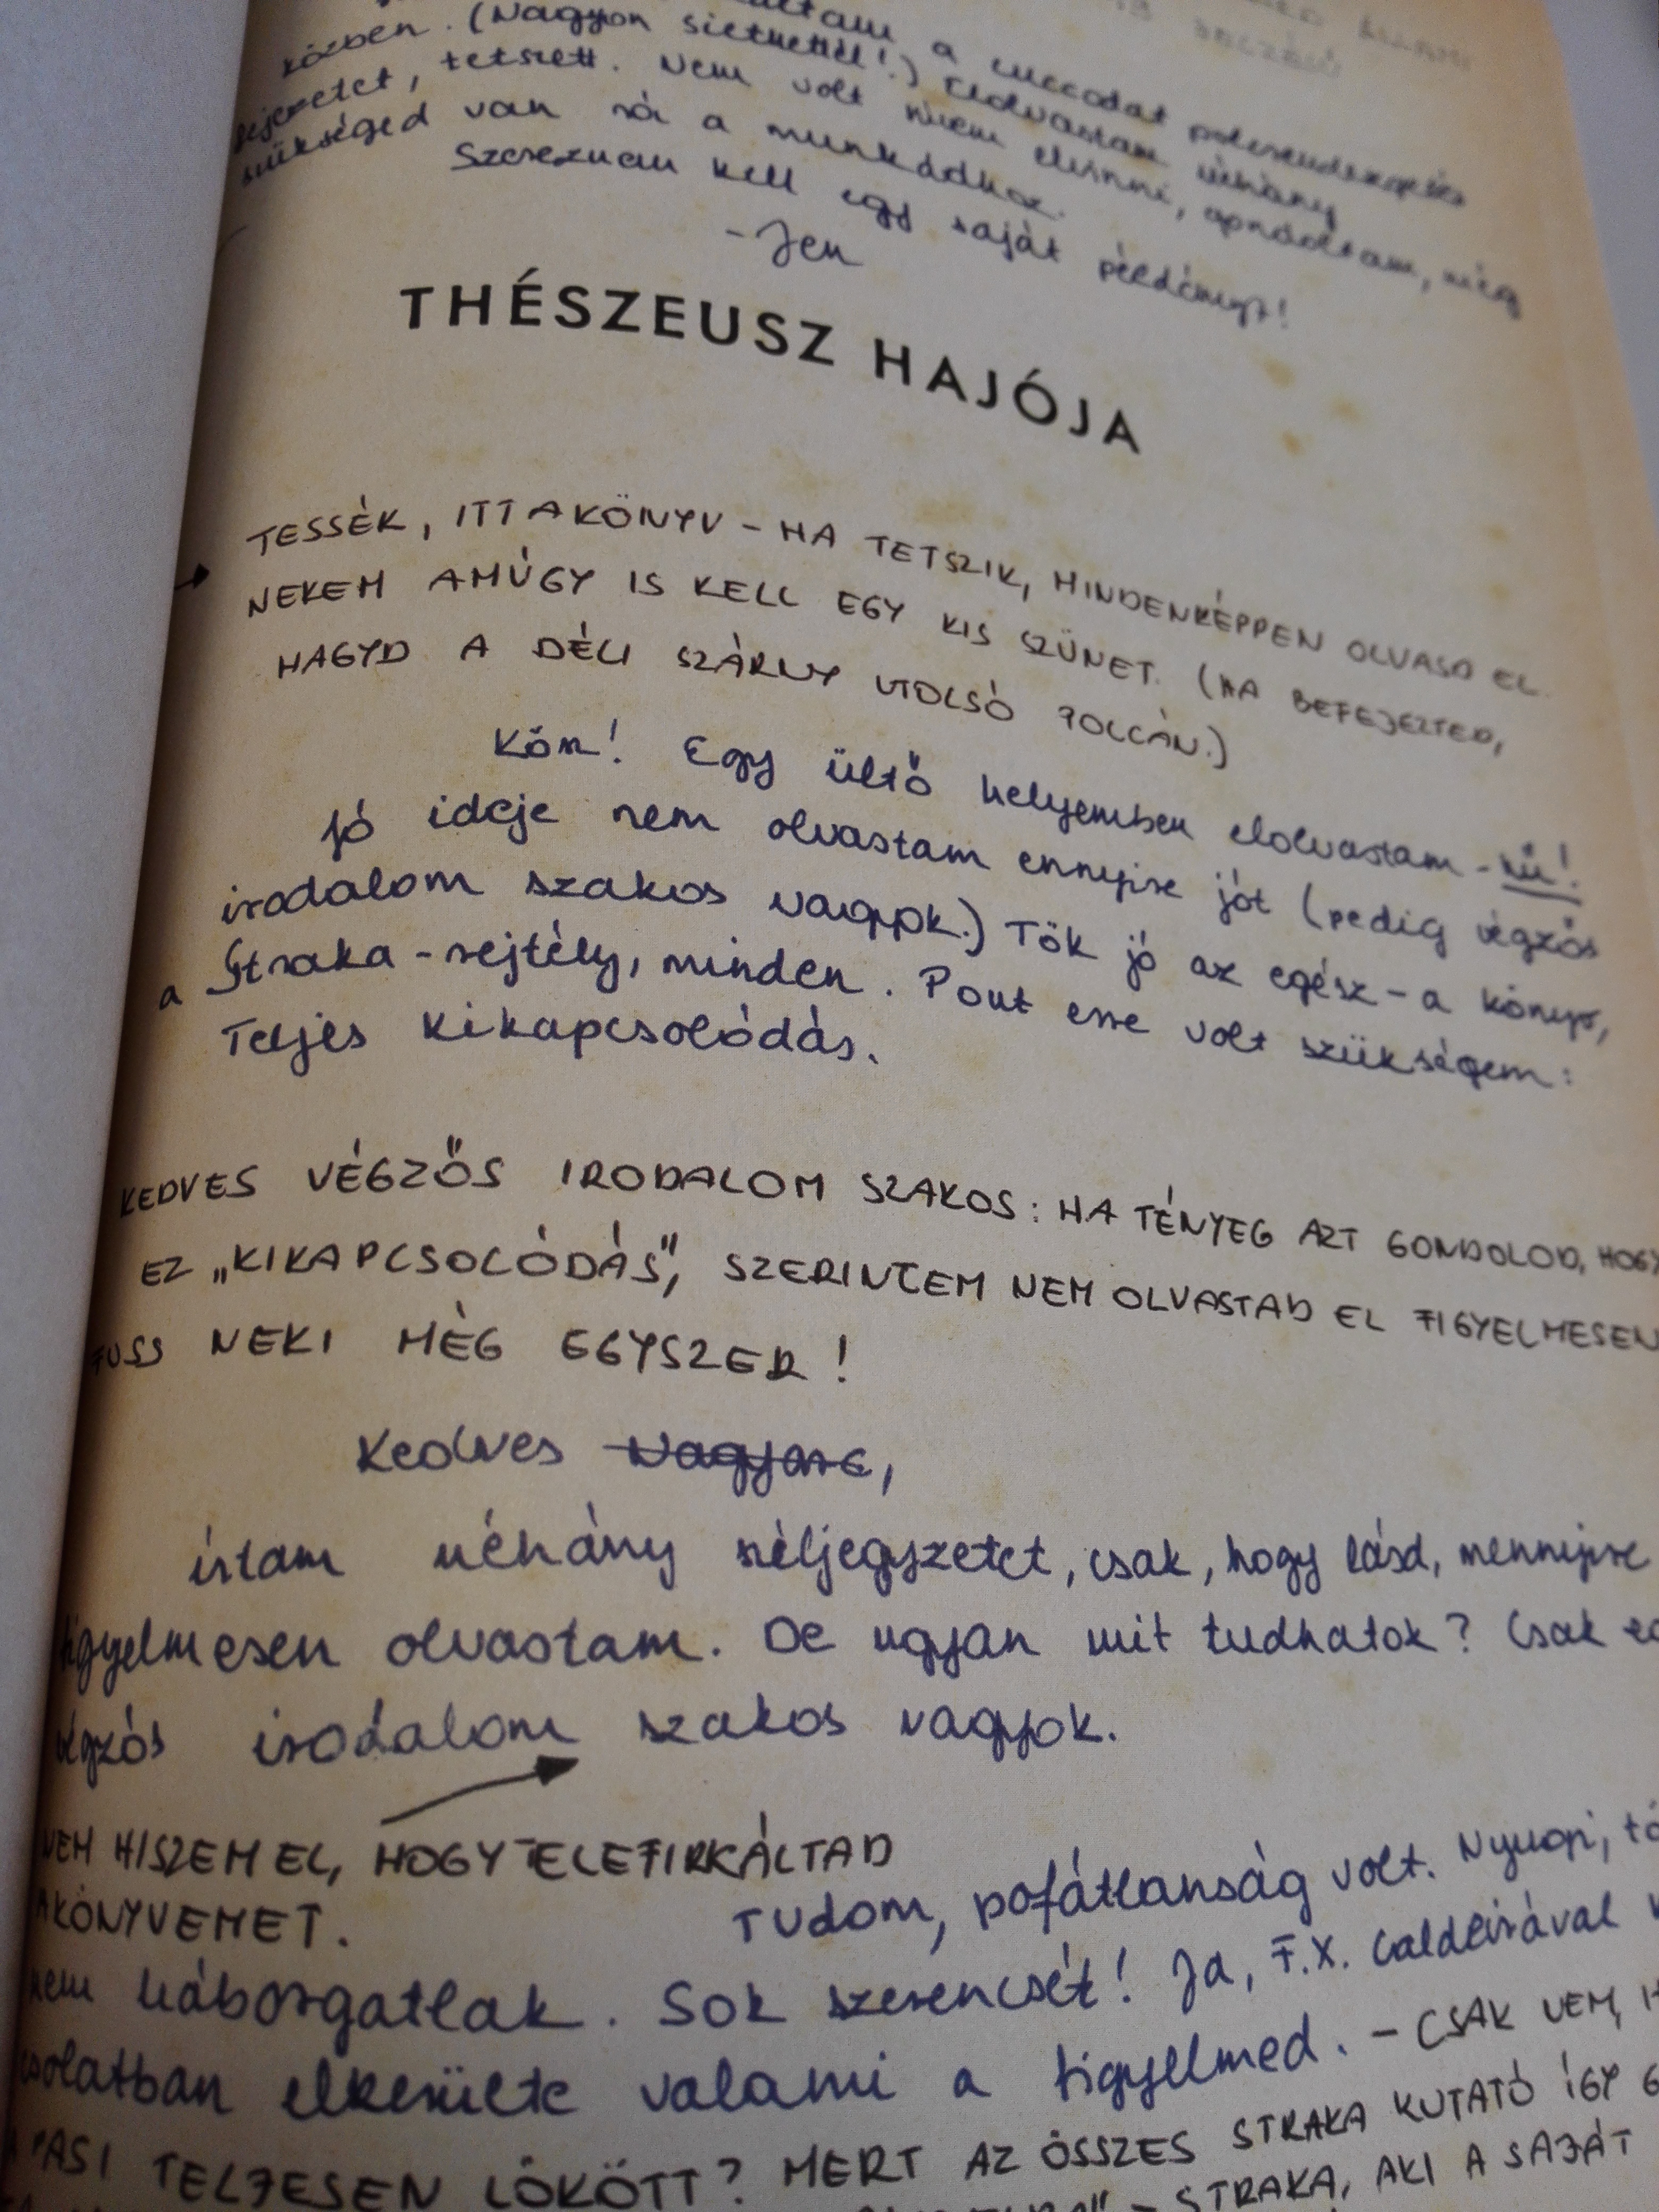 a cuccodat polcrendezgetés
közben. (Nagyon siethettél!) Elolvastam néhány
fejezetet, tetszett. Nem volt hírem elvinni, apródtam, még
szükséged van rá a munkádhoz.
Szereznem kell egy saját példányt!
-Jen
THÉSZEUSZ HAJÓJA
TESSÉK, ITT A KÖNYV - HA TETSZIK, MINDENKÉPPEN OLVASD EL.
NEKEM AMÚGY IS KELL EGY KIS SZÜNET. (HA BEFEJEZTED,
HAGYD A DÉLI SZÁRNY UTOLSÓ POLCÁN.)
Köm! Egy ültő helyemben elolvastam - hű!
Jó ideje nem olvastam ennyire jót (pedig végzős
irodalom szakos vagyok.) Tök jó az egész - a könyv,
a Straka-rejtély, minden. Pont erre volt szükségem:
Teljes kikapcsolódás.
KEDVES VÉGZŐS IRODALOM SZAKOS: HA TÉNYEG AZT GONDOLOD, HOGY
EZ „KIKAPCSOLÓDÁS”, SZERINTEM NEM OLVASTAD EL FIGYELMESEN
FUSS NEKI MÉG EGYSZER!
Kedves
írtam néhány széljegyzetet, csak, hogy lásd, mennyire
figyelmesen olvastam. De ugyan mit tudhatok? Csak
végzős irodalom szakos vagyok.
NEM HISZEM EL, HOGY TELEFIRKÁLTAD
A KÖNYVEMET.
Tudom, pofátlanság volt. Nyugi,
nem háborgatlak. Sok szerencsét! Ja, F.X. Caldeirával
csolatban elkerülte valami a figyelmed. - CSAK NEM,
TELJESEN LÖKÖTT? MERT AZ ÖSSZES STRAKA KUTATÓ ÍGY
- STRAKA, AKI A SAJÁT